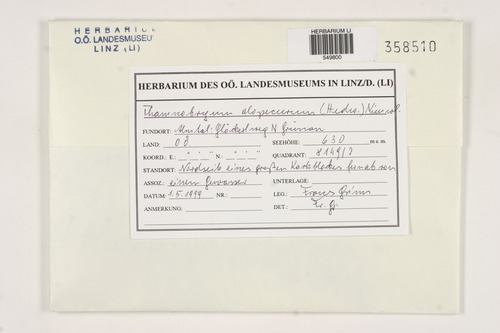 HERBARIUM
O.Ö. LANDESMUSEU
LINZ (LI)
HERBARIUM LI
549800
358510
HERBARIUM DES OÖ. LANDESMUSEUMS IN LINZ/D. (LI)
Thamnobryum alopecurum (Hedw.) Nieuwl.
FUNDORT: Almtal: N Grünau
LAND: OÖ SEEHÖHE: 630 m s. m.
KOORD.: E.: ° ' " N.: ° ' " QUADRANT: 8149/2
STANDORT: Nordseite eines großen Kalkblockes
ASSOZ.: einem Gewässer UNTERLAGE:
DATUM: 1.5.1999 NR.: LEG.: Franz Grims
ANMERKUNG: DET.: Fr. Gr.